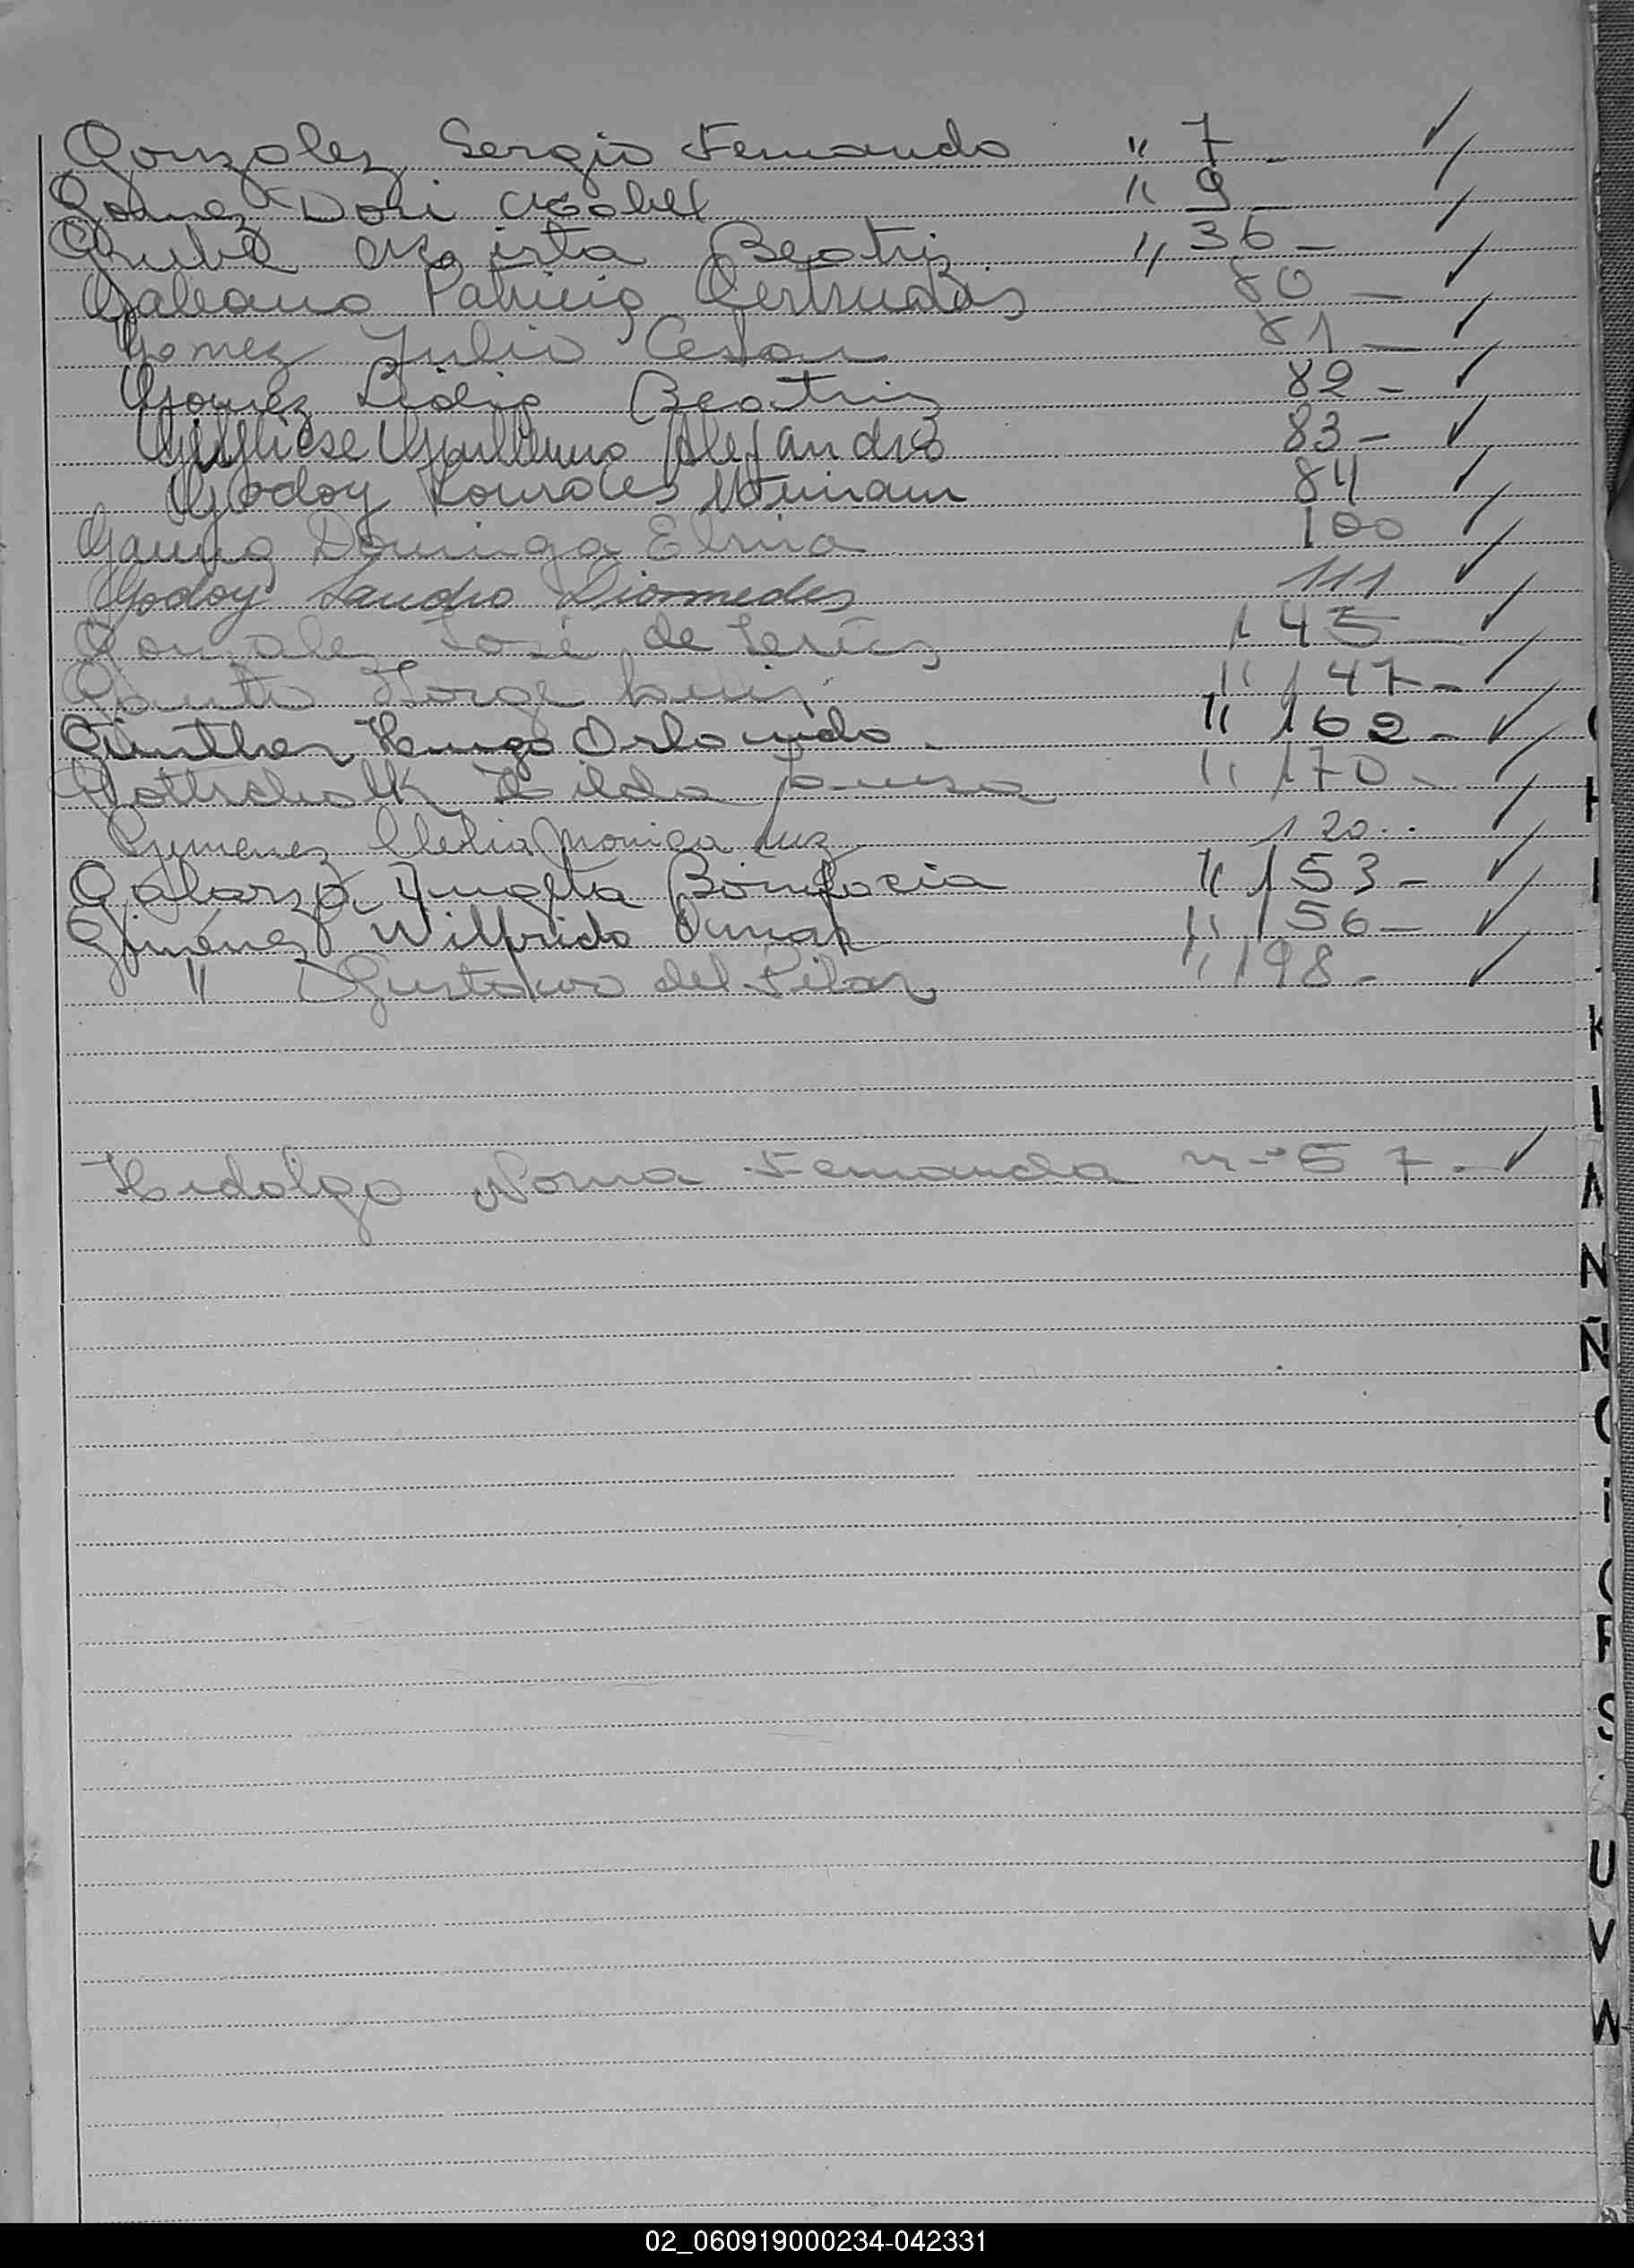 Gonzalez Sergio Fernando " 7 - ✓
Gomez Dori Mabel " 9 - ✓
Grube Mirta Beatriz " 36 - ✓
Galeano Patricia Gertrudis 80 - ✓
Gomez Julio Cesar 81 - ✓
Gomez Lidia Beatriz 82 - ✓
Guillermo Alejandro 83 - ✓
Godoy Lourdes Miriam 84 ✓
Dominga Elvira 100 ✓
Godoy Sandro Diomedes 111 ✓
Gonzalez José de Jesús 145 - ✓
Jorge Luis " 147 - ✓
Günther Hugo Orlando - " 162 - ✓
Gottschalk Hilda Luisa " 170 - ✓
Gimenez Clelia Monica Luz 120 - ✓
Galarza Bonifacia " 153 - ✓
Giménez Wilfrido Omar " 156 - ✓
" Gustavo del Pilar " 198 - ✓
Hidalgo Norma Fernanda n-° 57 - ✓
H
I
K
L
N
Ñ
S
U
V
W
02_060919000234-042331